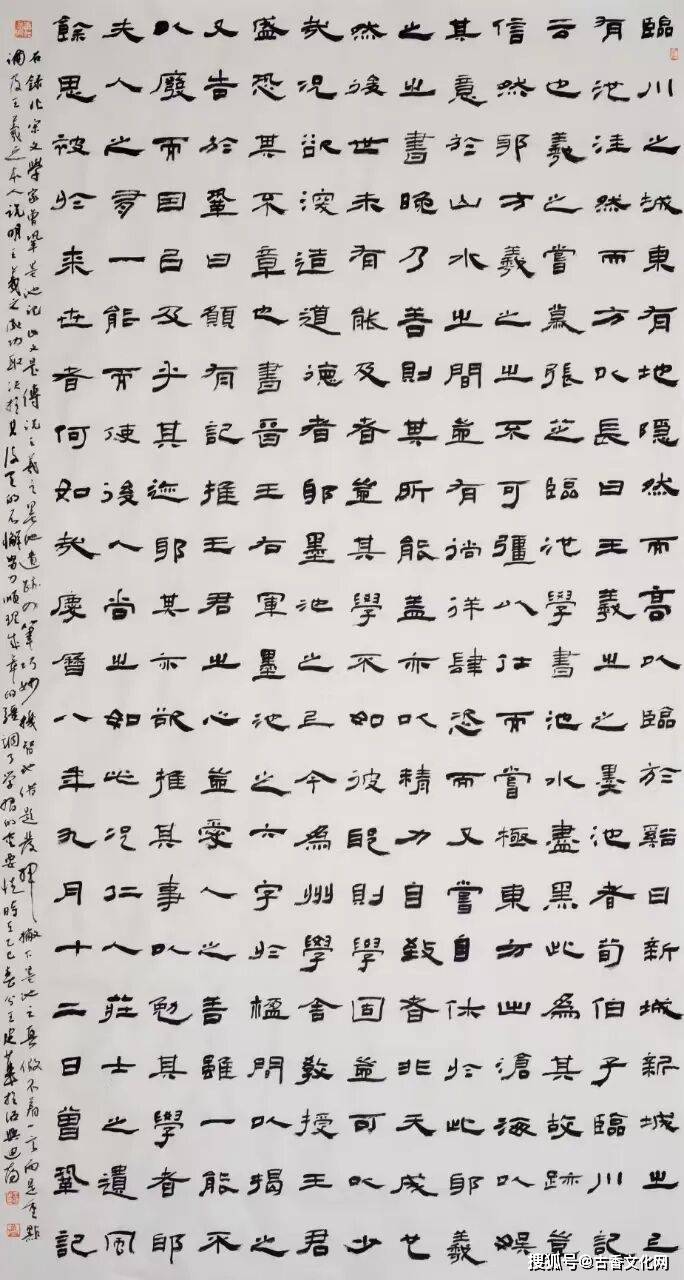 臨川之城東有地隱然而高以臨於谿曰新城新城之上
有池洼然而方以長曰王羲之之墨池者荀伯子臨川記
云也羲之嘗慕張芝臨池學書池水盡黑此為其故跡豈
信然邪方羲之之不可彊以仕而嘗極東方出滄海以娛
其意於山水之間豈有徜徉肆恣而又嘗自休於此邪羲
之之書晚乃善則其所能蓋亦以精力自致者非天成也
然後世未有能及者豈其學不如彼邪則學固豈可以少
哉況欲深造道德者邪墨池之上今為州學舍教授王君
盛恐其不章也書晉王右軍墨池之六字於楹間以揭之
又告於鞏曰願有記推王君之心豈愛人之善雖一能不
以廢而因以及乎其迹邪其亦欲推其事以勉其學者邪
夫人之有一能而使後人尚之如此況仁人莊士之遺風
餘思被於來世者何如哉慶曆八年九月十二日曾鞏記
右錄北宋文學家曾鞏墨池記此文是傳說王羲之墨池遺跡的筆巧妙機智地借題發揮撇下墨池之真假不着一字而是重點
調及王羲之本人說明王羲之成功取決於其後天的不懈努力順理成章的強調了學習的重要性時在乙巳春分王
搜狐号@古香文化网